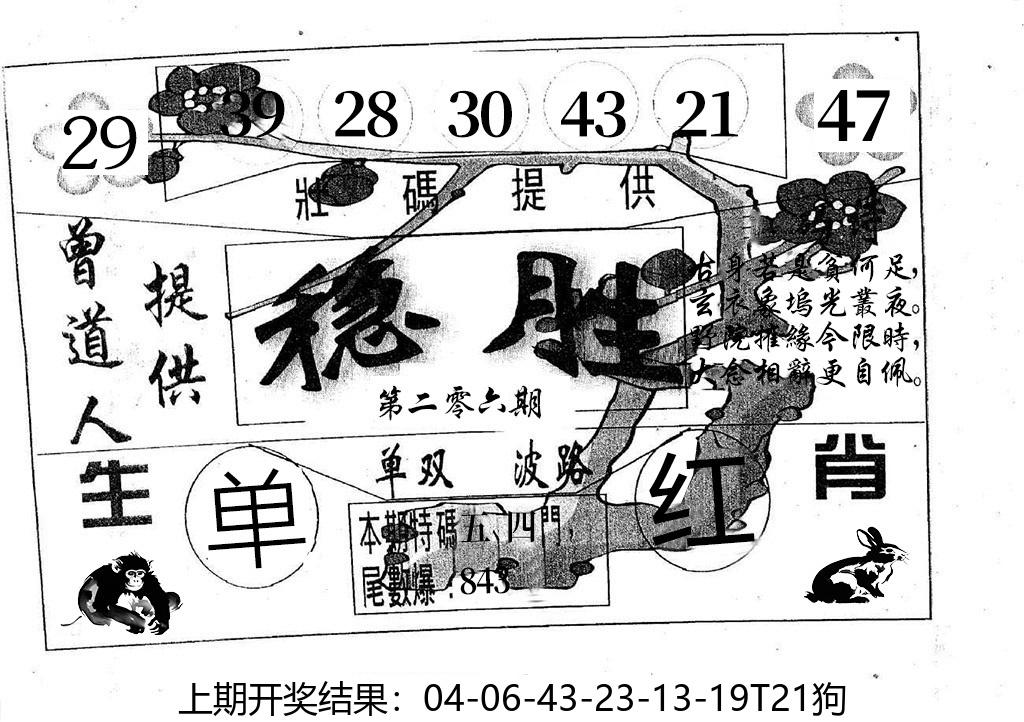 29 39 28 30 43 21 47
壯碼提供
曾道人
提供
稳胜
第二零六期
身若是貧何足，
玄衣象塢光叢夜。
野院推緣今限時，
大念相辭更自佩。
单双 波路
生肖
单
红
本期特碼五、四門，
尾數爆：843
上期开奖结果：04-06-43-23-13-19T21狗